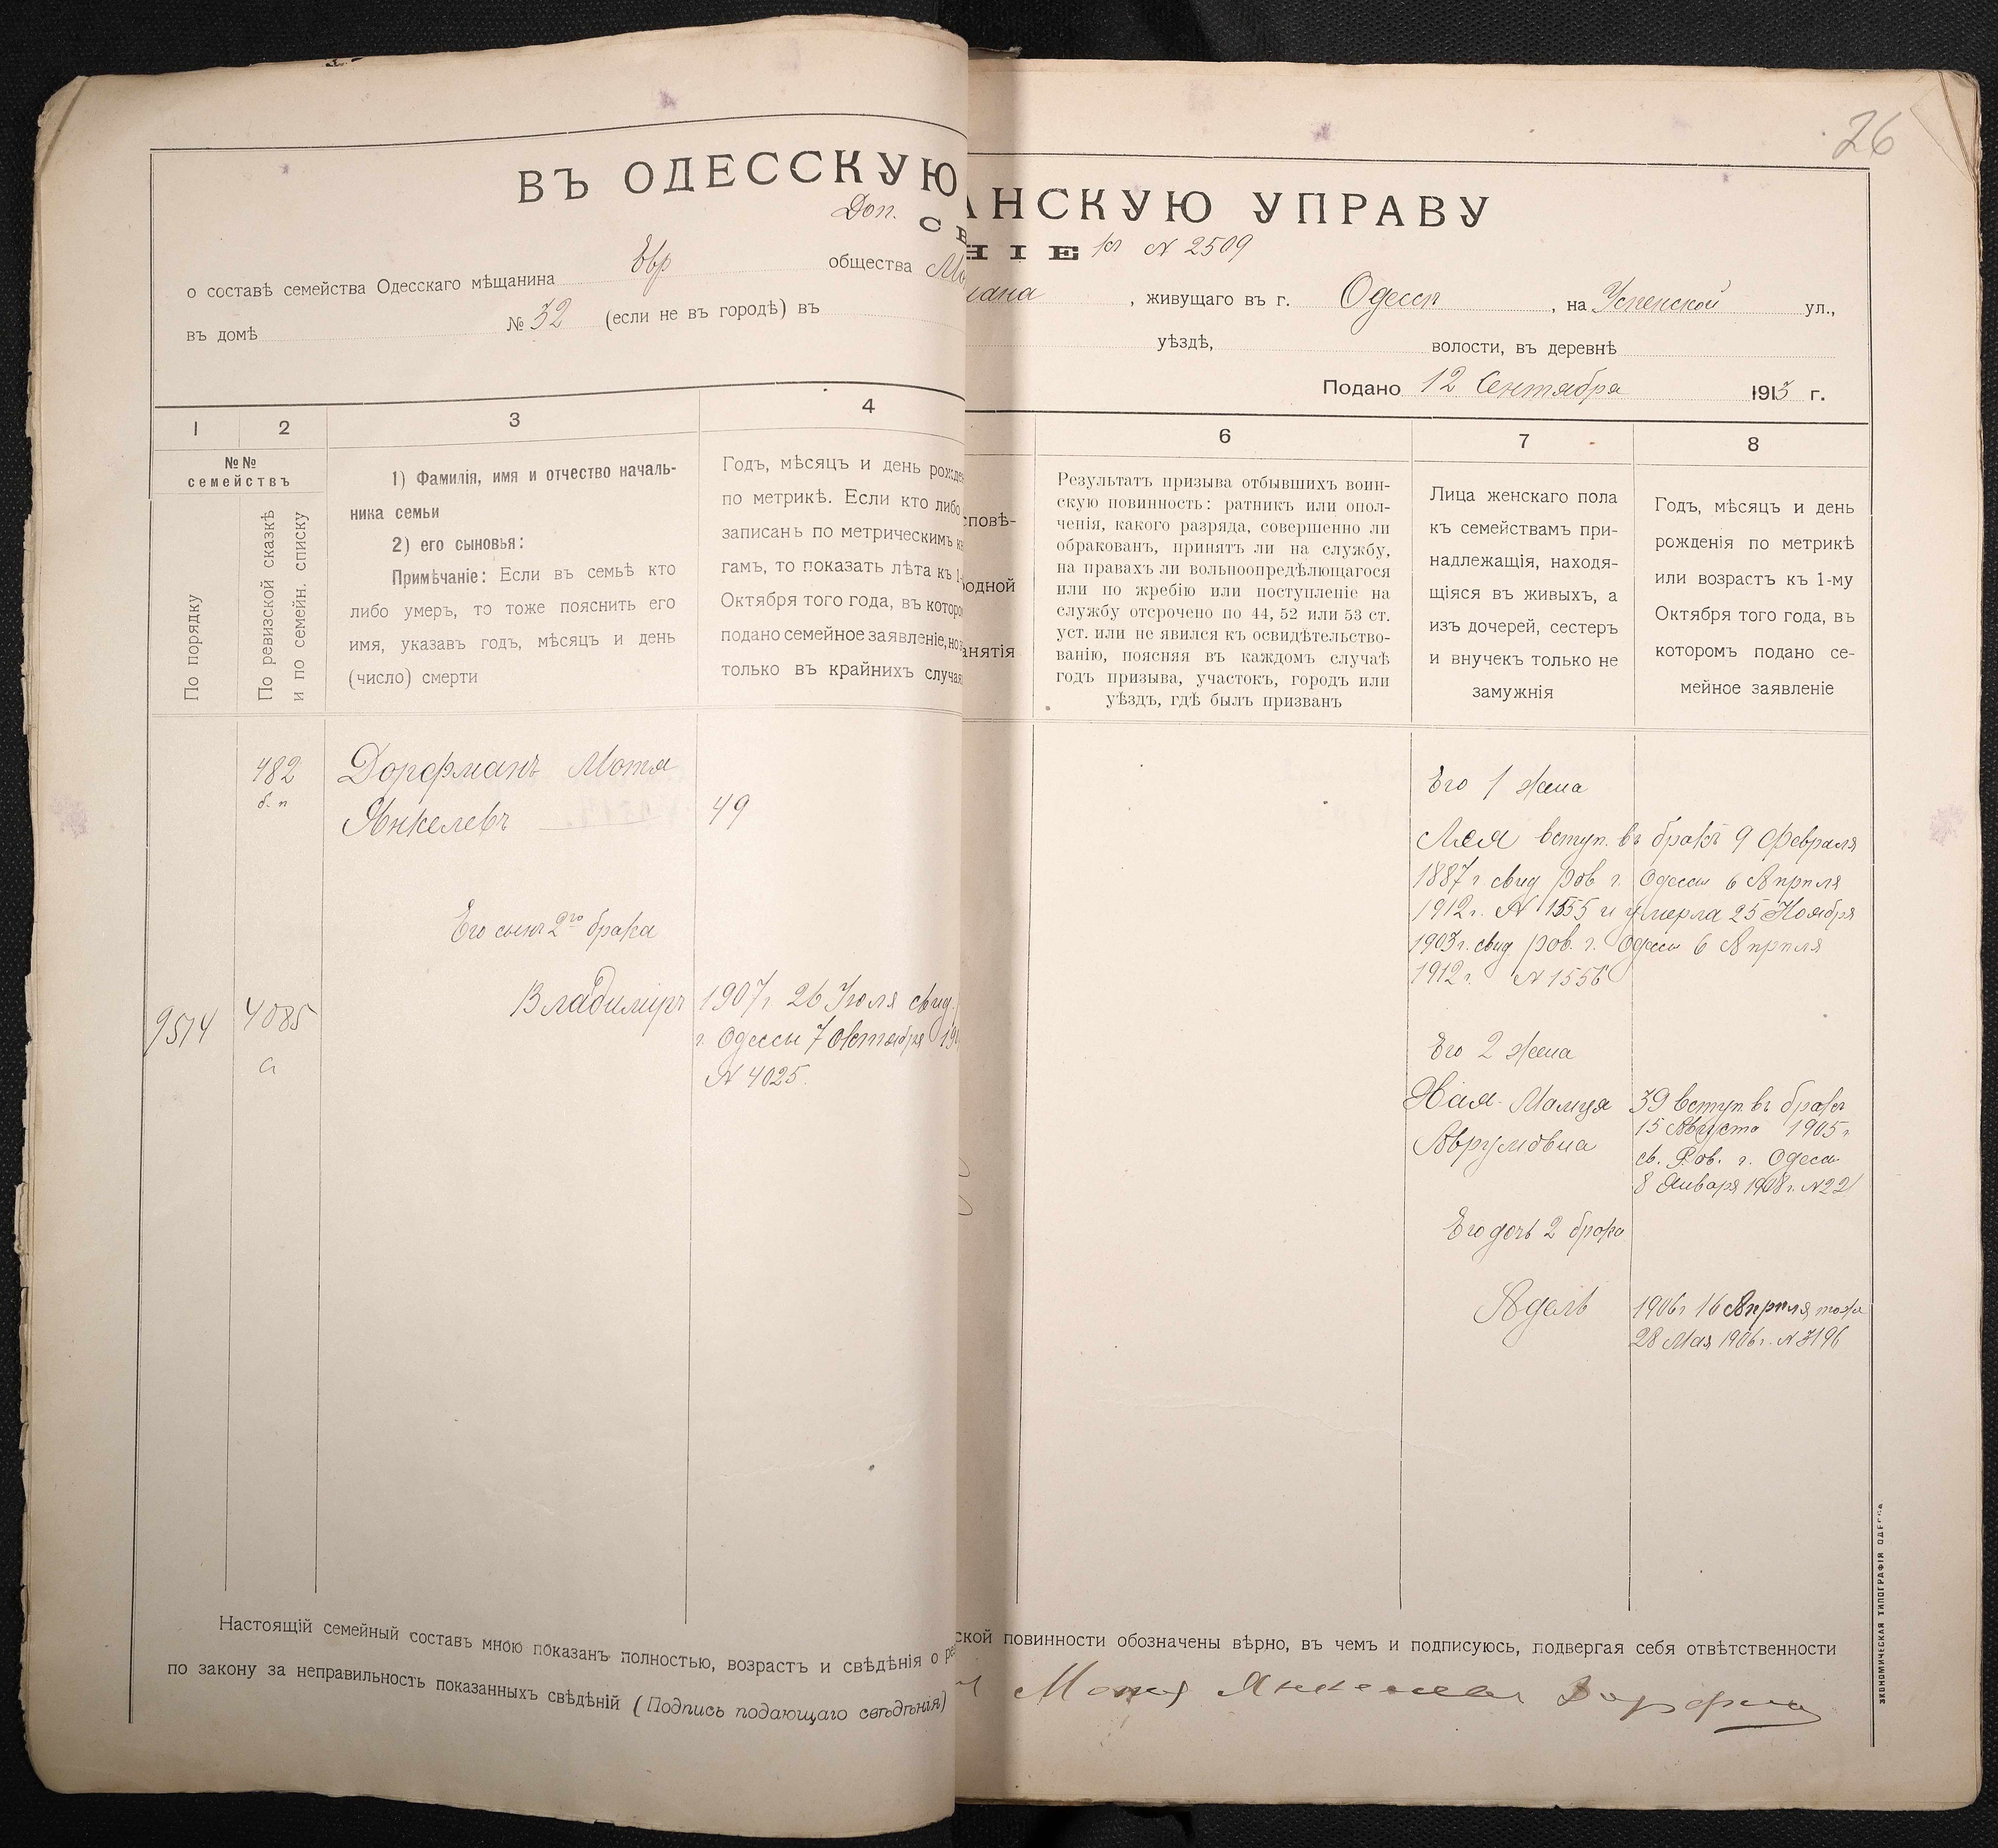 26
ВЪ ОДЕССКУЮ
АНСКУЮ УПРАВУ
Доп. СВ
НІЕ № 2509
о составѣ семейства Одесскаго мѣщанина Евр общества Мо
, живущаго въ г. Одессѣ, на Успенской ул.,
въ домѣ № 32 (если не въ городѣ) въ
уѣздѣ, волости, въ деревнѣ
Подано 12 Сентября 1913 г.
1 2 3 4
6 7 8
№№
семействъ
По порядку
По ревизской сказкѣ
и по семейн. списку
1) Фамилія, имя и отчество началь-
ника семьи
2) его сыновья:
Примѣчаніе: Если въ семьѣ кто
либо умеръ, то тоже пояснить его
имя, указавъ годъ, мѣсяцъ и день
(число) смерти
Годъ, мѣсяцъ и день рожден
по метрикѣ. Если кто либо
записанъ по метрическимъ кн
гамъ, то показать лѣта къ 1-
Октября того года, въ которо
подано семейное заявленіе, но
только въ крайнихъ случая
сповѣ-
родной
анятія
Результатъ призыва отбывшихъ воин-
скую повинность: ратникъ или опол-
ченія, какого разряда, совершенно ли
обракованъ, принятъ ли на службу,
на правахъ ли вольноопредѣлющагося
или по жребію или поступленіе на
службу отсрочено по 44, 52 или 53 ст.
уст. или не явился къ освидѣтельство-
ванію, поясняя въ каждомъ случаѣ
годъ призыва, участокъ, городъ или
уѣздъ, гдѣ былъ призванъ
Лица женскаго пола
къ семействамъ при-
надлежащія, находя-
щіяся въ живыхъ, а
изъ дочерей, сестеръ
и внучекъ только не
замужнія
Годъ, мѣсяцъ и день
рожденія по метрикѣ
или возрастъ къ 1-му
Октября того года, въ
которомъ подано се-
мейное заявленіе
482
б. п
Дорфманъ Мотя
Янкелевъ 49
Его сынъ 2го брака
9514 4085
а
Владиміръ 1907 г 26 Іюля свид.
г. Одессы 7 октября 19
№ 4025.
Его 1 жена
Лея вступ. въ бракъ 9 Февраля
1887 г. свид рав г. Одессы 6 Апрѣля
1912 г. № 1555 и умерла 25 Ноября
1903 г. свид рав. г. Одессы 6 Апрѣля
1912 г. № 1556
Его 2 жена
Хая-Молця 39 вступ. въ бракъ
Аврумовна 15 Августа 1905 г
св. Рав. г. Одессы
8 Января 1908 г. № 22
Его дочь 2 брака
Адель 1906 г 16 Апрѣля тоже
28 Мая 1906 г. № 3196
Настоящій семейный составъ мною показанъ полностью, возрастъ и свѣдѣнія о
ской повинности обозначены вѣрно, въ чемъ и подписуюсь, подвергая себя отвѣтственности
по закону за неправильность показанныхъ свѣдѣній (Подпись подающаго свѣдѣнія)
Мотя Янкелевъ Дорфман
ЭКОНОМИЧЕСКАЯ ТИПОГРАФІЯ ОДЕССА